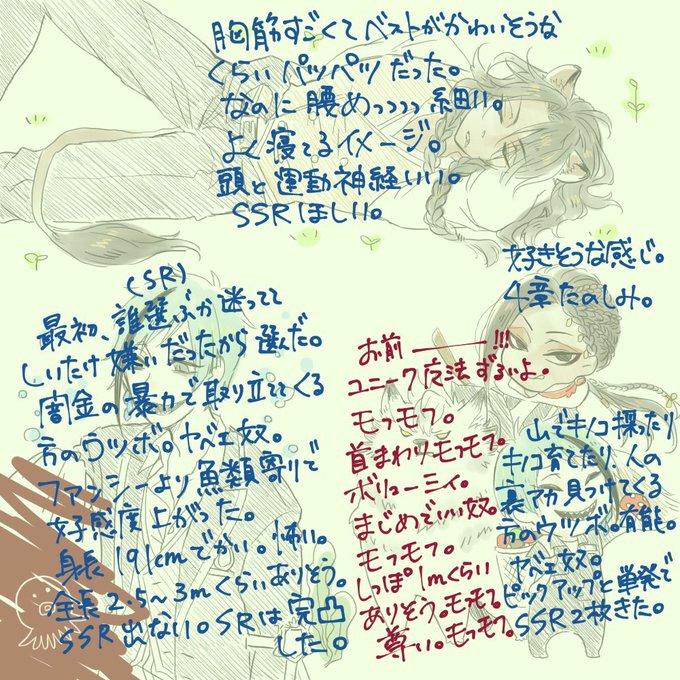 胸筋すごくてベストがかわいそうな
くらいパッパツだった。
なのに腰めっっっっ細い。
よく寝てるイメージ。
頭と運動神経いい。
SSRほしい。
好きそうな感じ。
4章たのしみ。
(SR)
最初、誰選ぶか迷ってて
しいたけ嫌いだったから選んだ。
闇金の暴力で取り立ててくる
方のウツボ。ヤベエ奴。
ファンシーより魚類寄りで
好感度上がった。
身長191cmでかい。怖い。
全長2.5〜3mくらいありそう。
SSR出ない。SRは完凸
した。
お前―――!!!
ユニーク魔法ずるいよ。
モフモフ。
首まわりモフモフ。
ボリューミィ。
まじめでいい奴。
モフモフ。
しっぽ1mくらい
ありそう。モフモフ。
尊い。モフモフ。
山でキノコ採ったり
キノコ育てたり、人の
裏アカ見つけてくる
方のウツボ。有能。
ヤベエ奴。
ピックアップと単発で
SSR2枚きた。